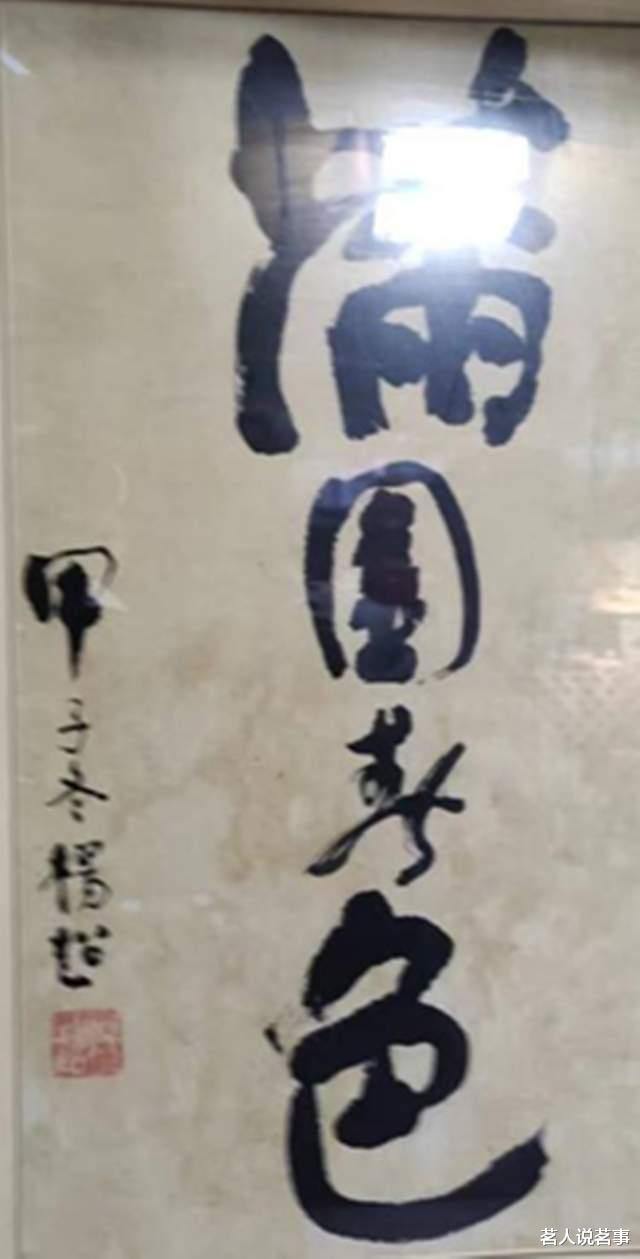 滿園春色
甲子冬楊超
茗人说茗事